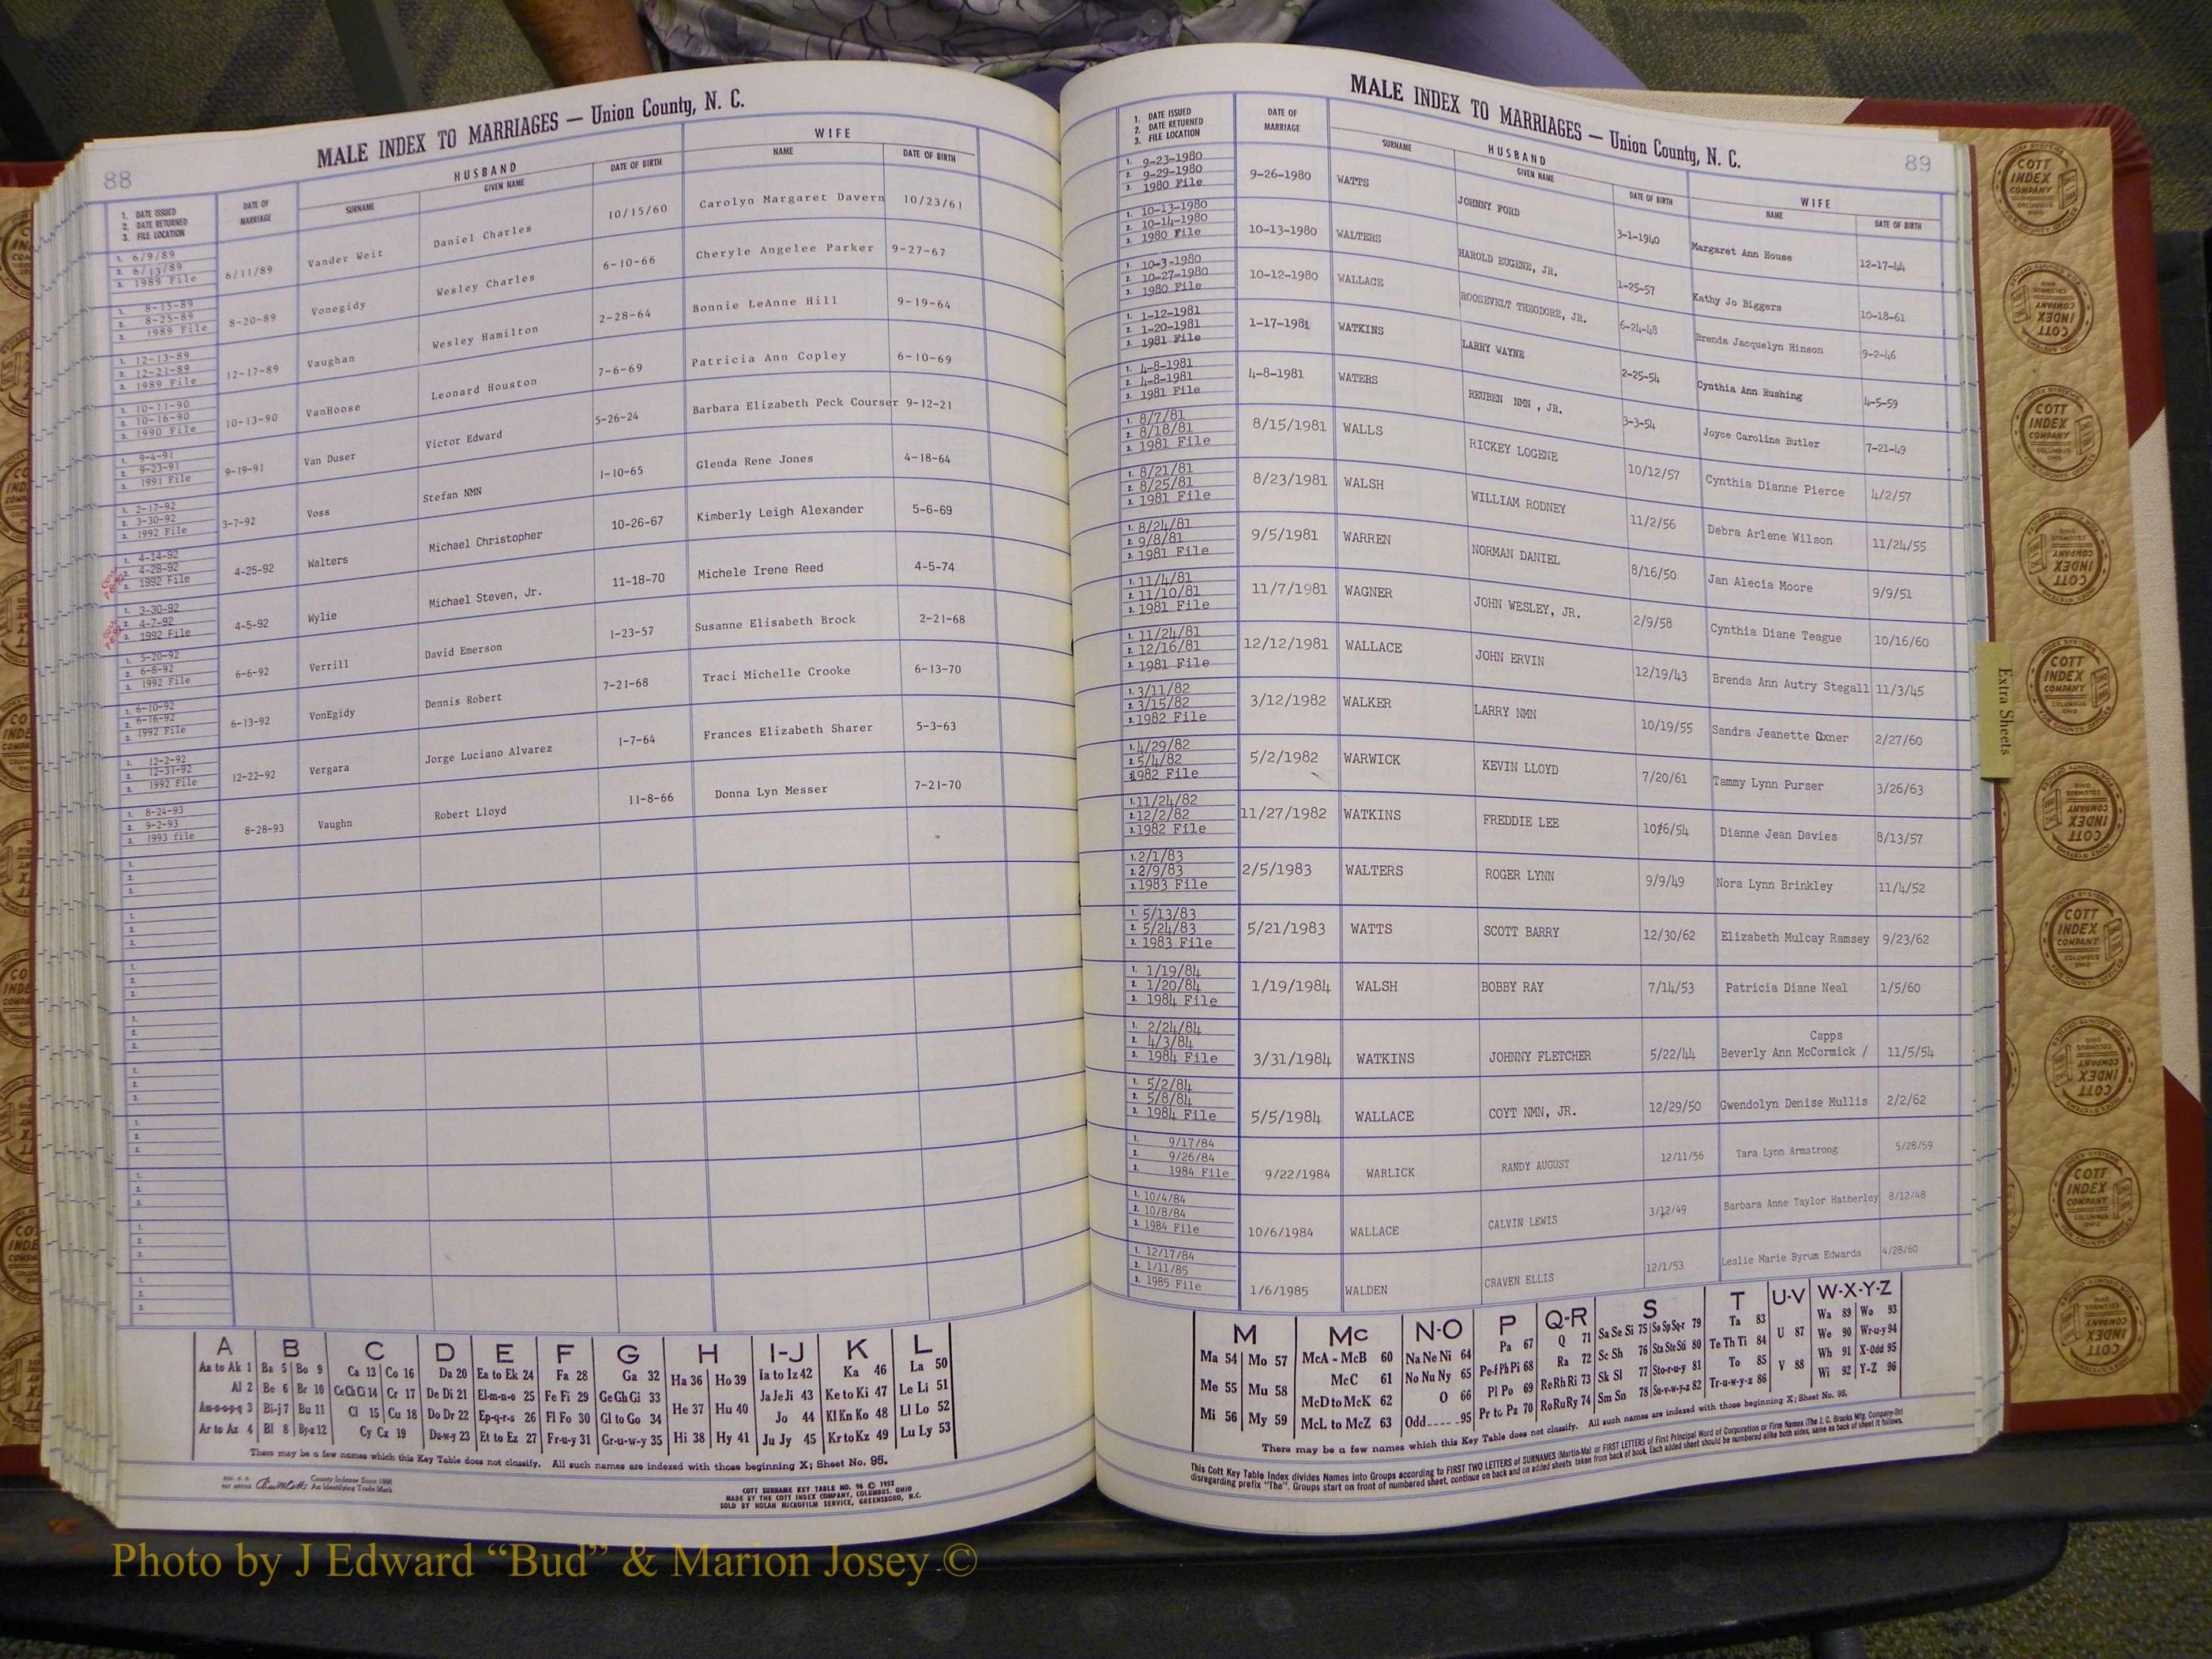 88
MALE INDEX TO MARRIAGES — Union County, N. C.
1. DATE ISSUED
2. DATE RETURNED
3. FILE LOCATION
DATE OF MARRIAGE
HUSBAND
SURNAME
GIVEN NAME
DATE OF BIRTH
WIFE
NAME
DATE OF BIRTH
1. 6/9/89
2. 6/13/89
3. 1989 File
6/11/89 Vander Weit Daniel Charles 10/15/60 Carolyn Margaret Davern 10/23/61
1. 8-15-89
2. 8-25-89
3. 1989 File
8-20-89 Vonegidy Wesley Charles 6-10-66 Cheryle Angelee Parker 9-27-67
1. 12-13-89
2. 12-21-89
3. 1989 File
12-17-89 Vaughan Wesley Hamilton 2-28-64 Bonnie LeAnne Hill 9-19-64
1. 10-11-90
2. 10-16-90
3. 1990 File
10-13-90 VanHoose Leonard Houston 7-6-69 Patricia Ann Copley 6-10-69
1. 9-4-91
2. 9-23-91
3. 1991 File
9-19-91 Van Duser Victor Edward 5-26-24 Barbara Elizabeth Peck Courser 9-12-21
1. 2-17-92
2. 3-30-92
3. 1992 File
3-7-92 Voss Stefan NMN 1-10-65 Glenda Rene Jones 4-18-64
1. 4-14-92
2. 4-28-92
3. 1992 File
4-25-92 Walters Michael Christopher 10-26-67 Kimberly Leigh Alexander 5-6-69
1. 3-30-92
2. 4-7-92
3. 1992 File
4-5-92 Wylie Michael Steven, Jr. 11-18-70 Michele Irene Reed 4-5-74
1. 5-20-92
2. 6-8-92
3. 1992 File
6-6-92 Verrill David Emerson 1-23-57 Susanne Elisabeth Brock 2-21-68
1. 6-10-92
2. 6-16-92
3. 1992 File
6-13-92 VonEgidy Dennis Robert 7-21-68 Traci Michelle Crooke 6-13-70
1. 12-2-92
2. 12-31-92
3. 1992 File
12-22-92 Vergara Jorge Luciano Alvarez 1-7-64 Frances Elizabeth Sharer 5-3-63
1. 8-24-93
2. 9-2-93
3. 1993 file
8-28-93 Vaughn Robert Lloyd 11-8-66 Donna Lyn Messer 7-21-70
A B C D E F G H I-J K L
Aa to Ak 1 Ba 5 Bo 9 Ca 13 Co 16 Da 20 Ea to Ek 24 Fa 28 Ga 32 Ha 36 Ho 39 Ia to Iz 42 Ka 46 La 50
Al 2 Be 6 Br 10 Ce Ch Ci 14 Cr 17 De Di 21 El-m-n-o 25 Fe Fi 29 Ge Gh Gi 33 He 37 Hu 40 Ja Je Ji 43 Ke to Ki 47 Le Li 51
Am-n-o-p-q 3 Bi-j 7 Bu 11 Cl 15 Cu 18 Do Dr 22 Ep-q-r-s 26 Fl Fo 30 Gl to Go 34 Jo 44 Kl Kn Ko 48 Ll Lo 52
Ar to Az 4 Bl 8 By-z 12 Cy Cz 19 Du-w-y 23 Et to Ez 27 Fr-u-y 31 Gr-u-w-y 35 Hi 38 Hy 41 Ju Jy 45 Kr to Kz 49 Lu Ly 53
There may be a few names which this Key Table does not classify. All such names are indexed with those beginning X; Sheet No. 95.
County Indexes Since 1888
An Identifying Trade Mark
COTT SURNAME KEY TABLE NO. 96 © 1952
MADE BY THE COTT INDEX COMPANY, COLUMBUS, OHIO
SOLD BY NOLAN MICROFILM SERVICE, GREENSBORO, N.C.
MALE INDEX TO MARRIAGES — Union County, N. C.
89
1. DATE ISSUED
2. DATE RETURNED
3. FILE LOCATION
DATE OF MARRIAGE
HUSBAND
SURNAME
GIVEN NAME
DATE OF BIRTH
WIFE
NAME
DATE OF BIRTH
1. 9-23-1980
2. 9-29-1980
3. 1980 File
9-26-1980 WATTS JOHNNY FORD 3-1-1940 Margaret Ann House 12-17-44
1. 10-13-1980
2. 10-14-1980
3. 1980 File
10-13-1980 WALTERS HAROLD EUGENE, JR. 1-25-57 Kathy Jo Biggers 10-18-61
1. 10-3-1980
2. 10-27-1980
3. 1980 File
10-12-1980 WALLACE ROOSEVELT THEODORE, JR. 6-24-48 Brenda Jacquelyn Hinson 9-2-46
1. 1-12-1981
2. 1-20-1981
3. 1981 File
1-17-1981 WATKINS LARRY WAYNE 2-25-54 Cynthia Ann Rushing 4-5-59
1. 4-8-1981
2. 4-8-1981
3. 1981 File
4-8-1981 WATERS REUBEN NMN , JR. 3-3-54 Joyce Caroline Butler 7-21-49
1. 8/7/81
2. 8/18/81
3. 1981 File
8/15/1981 WALLS RICKEY LOGENE 10/12/57 Cynthia Dianne Pierce 4/2/57
1. 8/21/81
2. 8/25/81
3. 1981 File
8/23/1981 WALSH WILLIAM RODNEY 11/2/56 Debra Arlene Wilson 11/24/55
1. 8/24/81
2. 9/8/81
3. 1981 File
9/5/1981 WARREN NORMAN DANIEL 8/16/50 Jan Alecia Moore 9/9/51
1. 11/4/81
2. 11/10/81
3. 1981 File
11/7/1981 WAGNER JOHN WESLEY, JR. 2/9/58 Cynthia Diane Teague 10/16/60
1. 11/24/81
2. 12/16/81
3. 1981 File
12/12/1981 WALLACE JOHN ERVIN 12/19/43 Brenda Ann Autry Stegall 11/3/45
1. 3/11/82
2. 3/15/82
3. 1982 File
3/12/1982 WALKER LARRY NMN 10/19/55 Sandra Jeanette Oxner 2/27/60
1. 4/29/82
2. 5/4/82
3. 1982 File
5/2/1982 WARWICK KEVIN LLOYD 7/20/61 Tammy Lynn Purser 3/26/63
1. 11/24/82
2. 12/2/82
3. 1982 File
11/27/1982 WATKINS FREDDIE LEE Dianne Jean Davies 8/13/57
1. 2/1/83
2. 2/9/83
3. 1983 File
2/5/1983 WALTERS ROGER LYNN 9/9/49 Nora Lynn Brinkley 11/4/52
1. 5/13/83
2. 5/24/83
3. 1983 File
5/21/1983 WATTS SCOTT BARRY 12/30/62 Elizabeth Mulcay Ramsey 9/23/62
1. 1/19/84
2. 1/20/84
3. 1984 File
1/19/1984 WALSH BOBBY RAY 7/14/53 Patricia Diane Neal 1/5/60
1. 2/24/84
2. 4/3/84
3. 1984 File
Capps
3/31/1984 WATKINS JOHNNY FLETCHER 5/22/44 Beverly Ann McCormick / 11/5/54
1. 5/2/84
2. 5/8/84
3. 1984 File
5/5/1984 WALLACE COYT NMN, JR. 12/29/50 Gwendolyn Denise Mullis 2/2/62
1. 9/17/84
2. 9/26/84
3. 1984 File
9/22/1984 WARLICK RANDY AUGUST 12/11/56 Tara Lynn Armstrong 5/28/59
1. 10/4/84
2. 10/8/84
3. 1984 File
10/6/1984 WALLACE CALVIN LEWIS 3/12/49 Barbara Anne Taylor Hatherley 8/12/48
1. 12/17/84
2. 1/11/85
3. 1985 File
1/6/1985 WALDEN CRAVEN ELLIS 12/1/53 Leslie Marie Byrum Edwards 4/28/60
M Mc N-O P Q-R S T U-V W-X-Y-Z
Ma 54 Mo 57 McA - McB 60 Na Ne Ni 64 Pa 67 Q 71 Sa Se Si 75 So Sp Sq-r 79 Ta 83 U 87 Wa 89 Wo 93
Me 55 Mu 58 McC 61 No Nu Ny 65 Pe-f Ph Pi 68 Ra 72 Sc Sh 76 Sta Ste Sti 80 Te Th Ti 84 We 90 Wr-u-y 94
McD to McK 62 O 66 Pl Po 69 Re Rh Ri 73 Sk Sl 77 Sto-r-u-y 81 To 85 V 88 Wh 91 X-Odd 95
Mi 56 My 59 McL to McZ 63 Odd 95 Pr to Pz 70 Ro Ru Ry 74 Sm Sn 78 Su-v-w-y-z 82 Tr-u-w-y-z 86 Wi 92 Y-Z 96
There may be a few names which this Key Table does not classify. All such names are indexed with those beginning X; Sheet No. 95.
This Cott Key Table Index divides Names into Groups according to FIRST TWO LETTERS of SURNAMES (Martin-Ma) or FIRST LETTERS of First Principal Word of Corporation or Firm Names (The J. C. Brooks Mfg. Company-Br)
disregarding prefix "The". Groups start on front of numbered sheet, continue on back and on added sheets taken from back of book. Each added sheet should be numbered alike both sides, same as back of sheet it follows.
Extra Sheets
COTT INDEX COMPANY COLUMBUS OHIO
Photo by J Edward “Bud” & Marion Josey ©